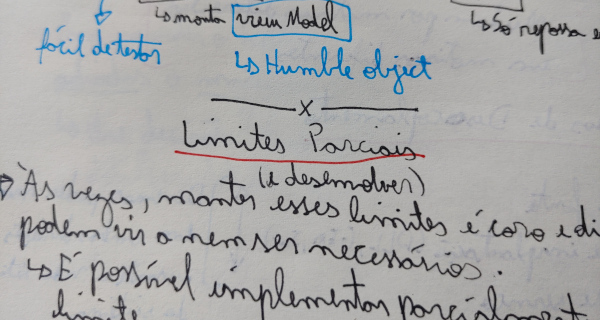 ↳ monta view Model
↳ Só repassa
fácil de testar
↳ Humble object
x
Limites Parciais
(e desenvolver)
Às vezes, manter esses limites é caro e di
podem vir a nem ser necessários.
↳ É possível implementar parcialment
limite